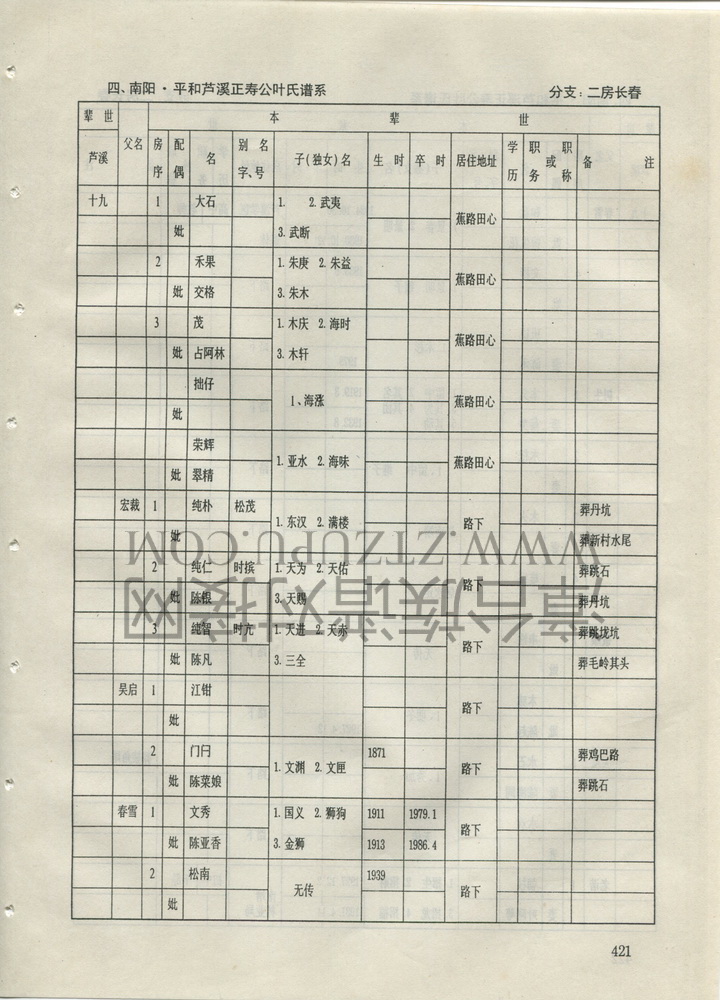 四、南阳·平和芦溪正寿公叶氏谱系 分支：二房长春
辈世 父名 本辈世
芦溪 房序 配偶 名 别名字、号 子(独女)名 生时 卒时 居住地址 学历 职务或职称 备注
十九 1 大石 1. 2.武夷 蕉路田心
妣 3.武断
2 禾果 1.朱庚 2.朱益 蕉路田心
妣 交格 3.朱木
3 茂 1.木庆 2.海时 蕉路田心
妣 占阿林 3.木轩
拙仔 1、海涨 蕉路田心
妣
荣辉 1.亚水 2.海味 蕉路田心
妣 翠精
宏裁 1 纯朴 松茂 1.东汉 2.满楼 路下 葬丹坑
妣 葬新村水尾
2 纯仁 时槟 1.天为 2.天佑 路下 葬跳石
妣 陈银 3.天赐 葬丹坑
3 纯智 时亢 1.天进 2.天赤 路下 葬跳垅坑
妣 陈凡 3.三全 葬毛岭其头
吴启 1 江钳 路下
妣
2 门闩 1.文渊 2.文匣 1871 路下 葬鸡巴路
妣 陈菜娘 葬跳石
春雪 1 文秀 1.国义 2.狮狗 1911 1979.1 路下
妣 陈亚香 3.金狮 1913 1986.4
2 松南 无传 1939 路下
妣
421
漳台族谱对接网
WWW.ZTZUPU.COM